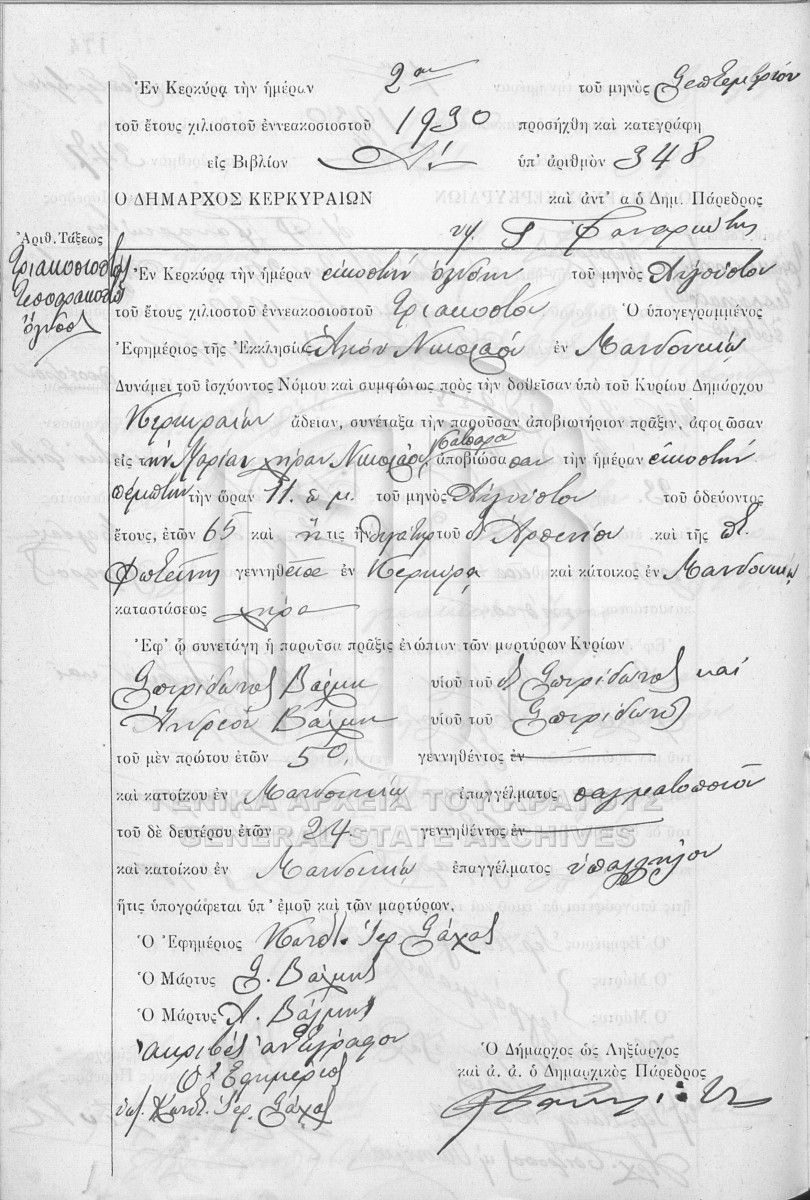 Ἐν Κερκύρᾳ τὴν ἡμέραν 2αν τοῦ μηνὸς Σεπτεμβρίου
τοῦ ἔτους χιλιοστοῦ ἐννεακοσιοστοῦ 1930 προσήχθη καὶ κατεγράφη
εἰς Βιβλίον Δ! ὑπ' ἀριθμὸν 348
Ο ΔΗΜΑΡΧΟΣ ΚΕΡΚΥΡΑΙΩΝ καὶ ἀντ' α ὁ Δημ. Πάρεδρος
Γ Φαναριώτης
Ἀριθ. Τάξεως
Τριακοσιοστὸς
Τεσσαρακοστὸς
ὄγδοος
Ἐν Κερκύρᾳ τὴν ἡμέραν εἰκοστὴν ὀγδόην τοῦ μηνὸς Αὐγούστου
τοῦ ἔτους χιλιοστοῦ ἐννεακοσιοστοῦ Τριακοστοῦ Ὁ ὑπογεγραμμένος
Ἐφημέριος τῆς Ἐκκλησίας Ἁγίου Νικολάου ἐν Μανδουκίῳ
Δυνάμει τοῦ ἰσχύοντος Νόμου καὶ συμφώνως πρὸς τὴν δοθεῖσαν ὑπὸ τοῦ Κυρίου Δημάρχου
Κερκυραίων ἄδειαν, συνέταξα τὴν παροῦσαν ἀποβιωτήριον πρᾶξιν, ἀφορῶσαν
εἰς τὴν Μαρίαν χήραν Νικολάου ἀποβιώσασαν τὴν ἡμέραν εἰκοστὴν
πέμπτην τὴν ὥραν 11. π μ. τοῦ μηνὸς Αὐγούστου τοῦ ὁδεύοντος
ἔτους, ἐτῶν 65 καὶ ἥτις ἦ θυγάτηρ τοῦ Ἀρσενίου καὶ τῆς ποτ.
Φωτεινῆς γεννηθεῖσα ἐν Κερκύρᾳ καὶ κάτοικος ἐν Μανδουκίῳ
καταστάσεως χήρα
Ἐφ' ᾧ συνετάγη ἡ παροῦσα πρᾶξις ἐνώπιον τῶν μαρτύρων Κυρίων
Σπυρίδωνος Βάλμη υἱοῦ τοῦ Σπυρίδωνος καὶ
Ἀνδρέου Βάλμη υἱοῦ τοῦ Σπυρίδωνος
τοῦ μὲν πρώτου ἐτῶν 50, γεννηθέντος ἐν
καὶ κατοίκου ἐν Μανδουκίῳ ἐπαγγέλματος παγματοποιοῦ
τοῦ δὲ δευτέρου ἐτῶν 24. γεννηθέντος ἐν
καὶ κατοίκου ἐν Μανδουκίῳ ἐπαγγέλματος ὑπαλλήλου
ἥτις ὑπογράφεται ὑπ' ἐμοῦ καὶ τῶν μαρτύρων.
Ὁ Ἐφημέριος Κωνστ. Ἱερ. Σάχας
Ὁ Μάρτυς Σ. Βάλμης
Ὁ Μάρτυς Α. Βάλμης
Ἀκριβὲς ἀντίγραφον
Ὁ Ἐφημέριος
Κωνστ. Ἱερ. Σάχας
Ὁ Δήμαρχος ὡς Ληξίαρχος
καὶ ἀ. ἀ. ὁ Δημαρχικὸς Πάρεδρος
ΓΕΝΙΚΑ ΑΡΧΕΙΑ ΤΟΥ ΚΡΑΤΟΥΣ
GENERAL STATE ARCHIVES